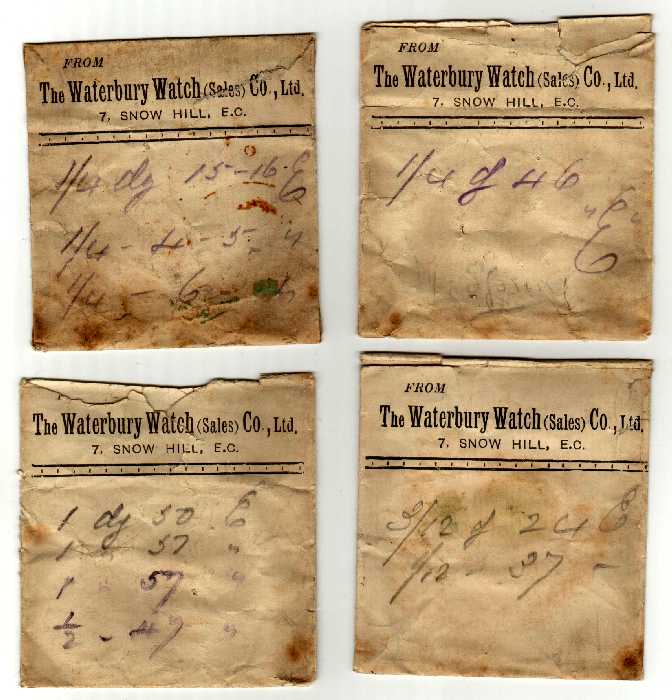 FROM
The Waterbury Watch (Sales) Co., Ltd.
7, SNOW HILL, E.C.
1/4 dz 15-16 E
1/4 - 4 - 5 "
1/4 - 6
FROM
The Waterbury Watch (Sales) Co., Ltd.
7, SNOW HILL, E.C.
1/4 d 46
"E"
E
The Waterbury Watch (Sales) Co., Ltd.
7, SNOW HILL, E.C.
1 dz 50 E
1 " 57 "
1 " 57 "
1/2 - 47 "
FROM
The Waterbury Watch (Sales) Co., Ltd.
7, SNOW HILL, E.C.
3/12 d 24 E
1/12 - 37 -